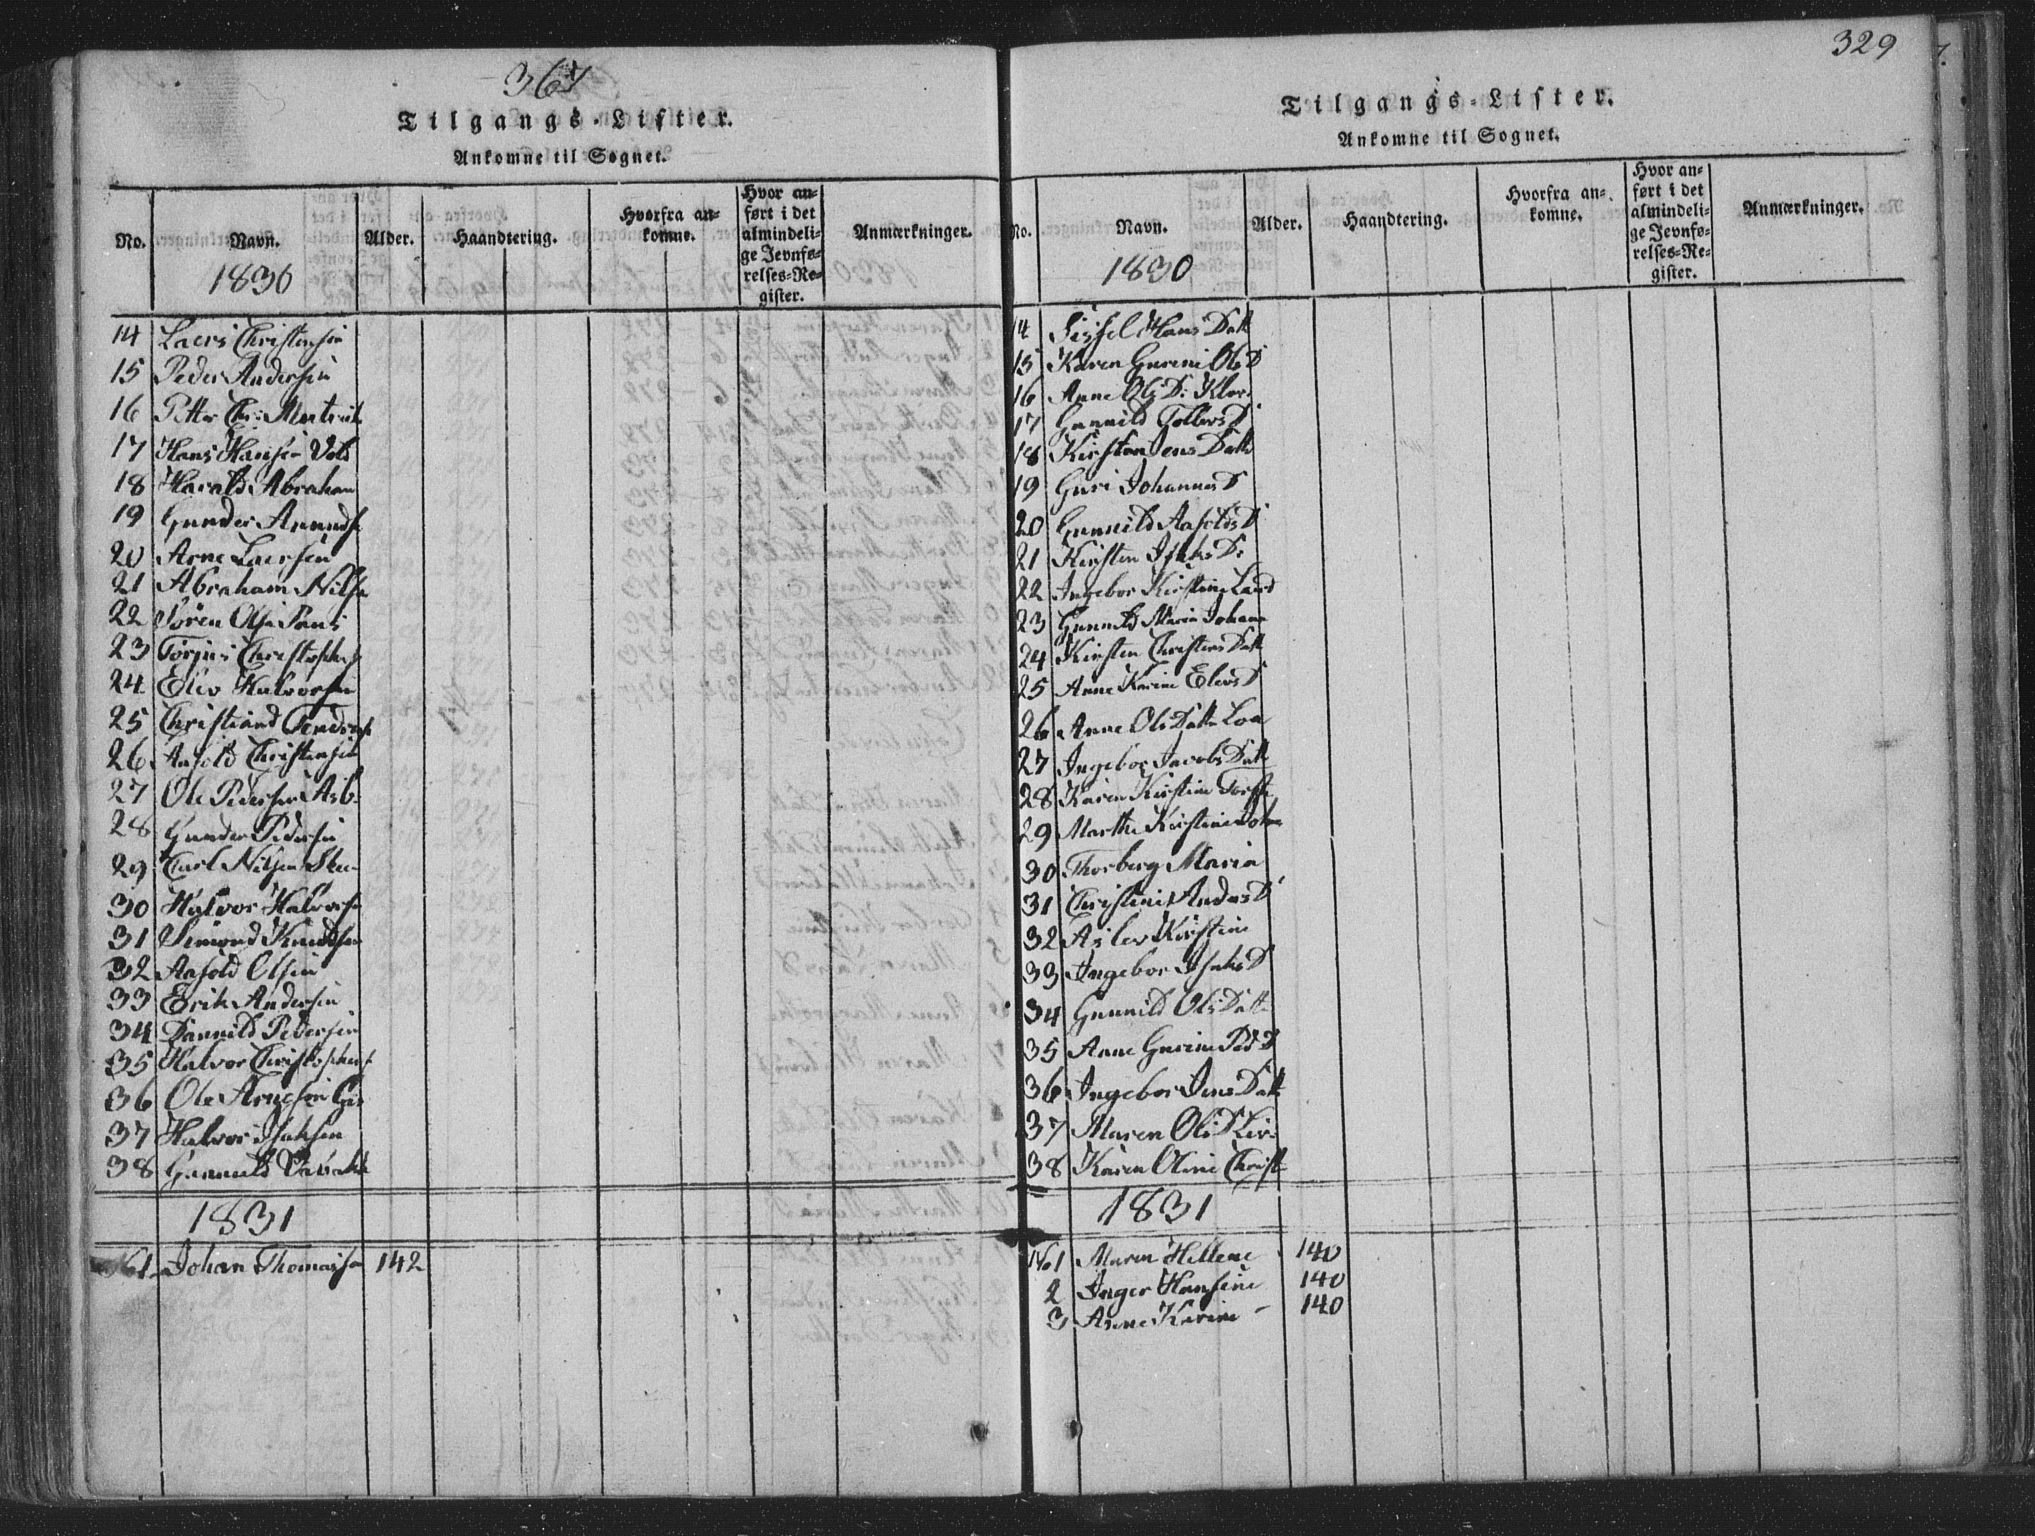 367
Tilgangs-Lister.
Ankomne til Sognet.
No.
Navn.
Alder.
Haandtering.
Hvorfra an-
komne.
Hvor an-
ført i det
almindeli-
ge Jevnfø-
relses-Re-
gister.
Anmærkninger.
1830
14 Laers Christensen
15 Peder Andersen
16 Petter Chr:
17 Hans Hansen
18 Harald Abraham
19 Gunder
20 Arne Laersen
21 Abraham Nilse
22 Sören Olsen
23 Torjus Christophers
24 Elev Halvorsen
25 Christiand
26 Aasold Christensen
27 Ole Pedersen Asb:
28 Gunder Pedersen
29 Carl Nilsen
30 Halvor Halvorse
31 Simond Knudsen
32 Aasold Olsen
33 Erik Andersen
34 Dannild Pedersen
35 Halvor Christophers
36 Ole Arnesen
37 Halvor Isaksen
38 Gunnuld
1831
61 Johan Thomassen 142
329
Tilgangs-Lister.
Ankomne til Sognet.
No.
Navn.
Alder.
Haandtering.
Hvorfra an-
komne.
Hvor an-
ført i det
almindeli-
ge Jevnfø-
relses-Re-
gister.
Anmærkninger.
1830
14 Sissel Hans Datt
15 Karen Gurine Ols D
16 Anne Ols D:
17 Gunnild Tollevs D
18 Kirsten Jens Datt
19 Guri Johannes D
20 Gunnild Aasolds D
21 Kirsten Isaks D:
22 Ingebor Kirstine
23 Gunnild Maria Johann
24 Kirsten Christens Datt
25 Anne Karine Elevs D
26 Anne Ols Datt
27 Ingebor Jacobs Datt
28 Karen Kirstine
29 Marthe Kirstine
30 Thorberg Maria
31 Christine Anders D
32 Aslev Kirstine
33 Ingebor Isaks D
34 Gunnild Ols Datt
35 Anne Gurine Ped D
36 Ingebor Jens Datt
37 Maren Ols D
38 Karen Oline Christ
1831
161 Maren Hellene 140
2 Inger Hansine 140
3 Anne Karine 140